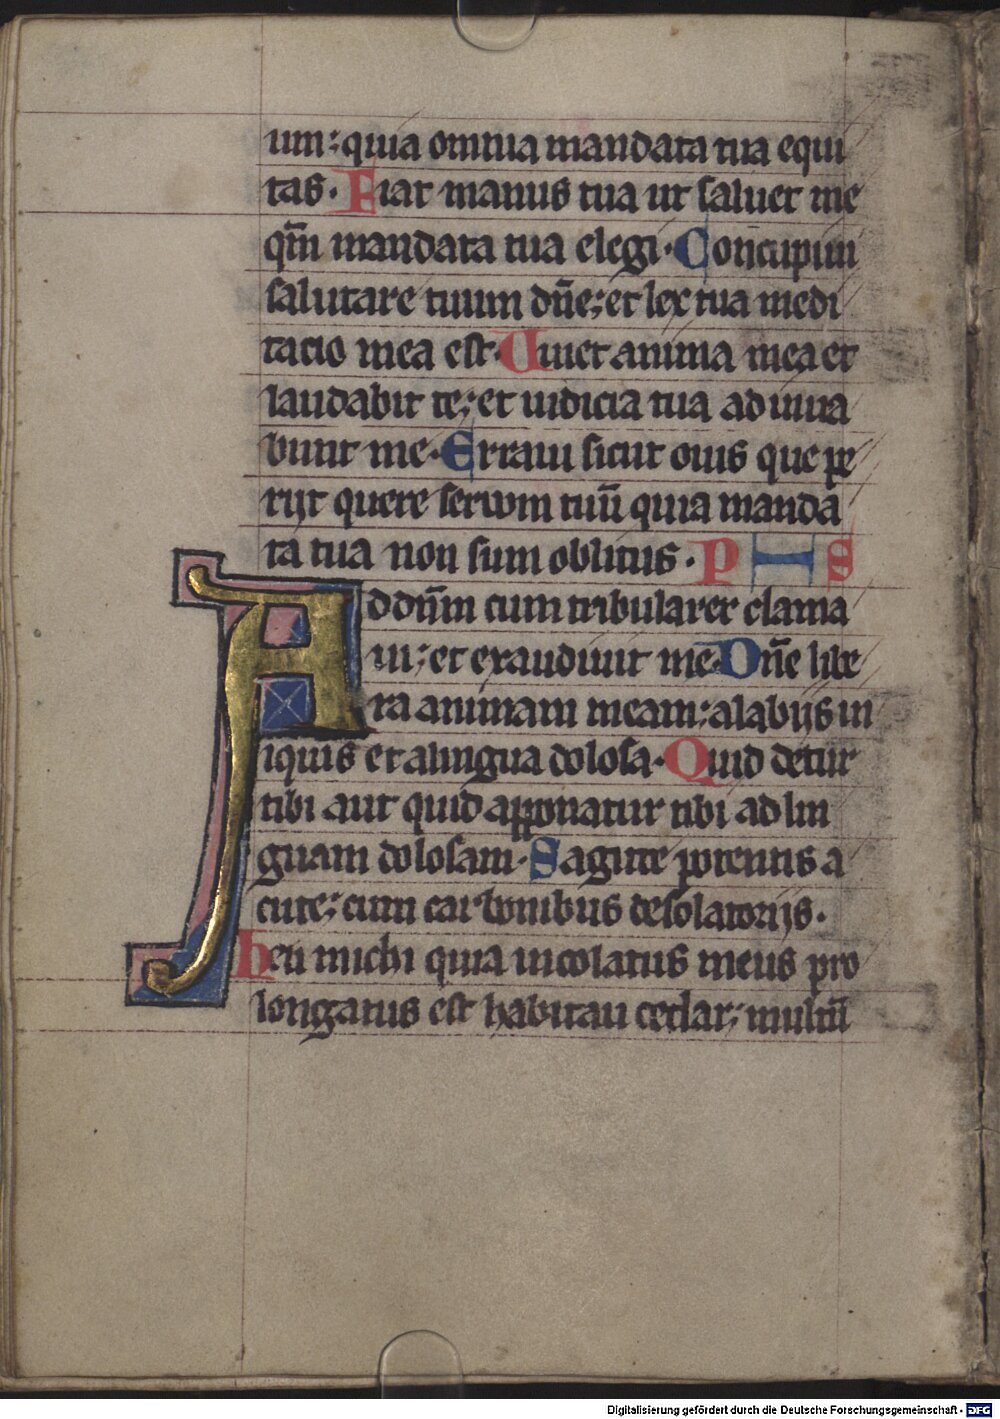 um: quia omnia mandata tua equi
tas. Fiat manus tua ut saluet me
qm̄ mandata tua elegi. Concupiui
salutare tuum dn̄e: et lex tua medi
tacio mea est. Uiuet anima mea et
laudabit te: et iudicia tua adiuua
bunt me. Erraui sicut ouis que pe
rijt quere seruum tuū quia manda
ta tua non sum oblitus. P S
Ad dn̄m cum tribularer clama
ui: et exaudiuit me. Dn̄e libe
ra animam meam: a labijs in
iquis et a lingua dolosa. Quid detur
tibi aut quid apponatur tibi ad lin
guam dolosam. Sagitte potentis a
cute: cum carbonibus desolatorijs.
Heu michi quia incolatus meus pro
longatus est habitaui cedar: multū
Digitalisierung gefördert durch die Deutsche Forschungsgemeinschaft - DFG